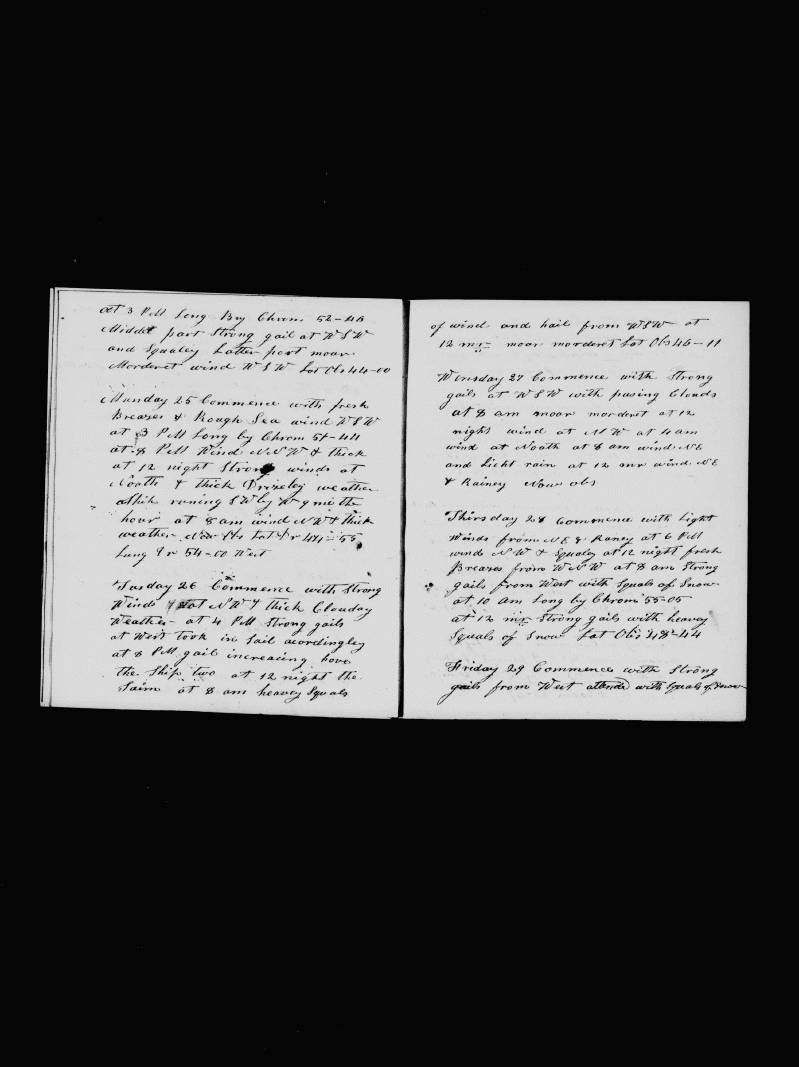 at 3 PM Long By Chrom 52-46
Middel part Strong gail at W S W
and Squaley Latter part moar
Morderet wind W S W Lat Obs 44-00
Munday 25 Commence with fresh
Breazes & Rough Sea wind W S W
at 3 PM Long by Chrom 54-44
at 8 PM Wind N N W & thick
at 12 night Strong winds at
Noath & thick Drizeley weather
athik runing S W by W 9 mi the
hour at 8 am wind N W & thick
weather Now Obs Lat Ar 44-55
Long Ar 54-00 West
Tusday 26 Commence with Strong
Winds at N W & thick Clouday
Weather at 4 PM Strong gails
at West took in Sail acordingley
at 8 PM gail increacing hove
the Ship two at 12 night the
Saim at 8 am heavey Squals
of wind and hail from WSW at
12 mr moar morderet Lat Obs 46-11
Wensday 27 Commence with Strong
gails at W S W with pasing Clouds
at 8 am moar morderet at 12
night wind at N W at 4 am
wind at Noath at 8 am wind N E
and Licht rain at 12 mr wind N E
& Rainey Now obs
Thirsday 28 Commence with Light
Winds from N E & Raney at 6 PM
winds N W & Squaley at 12 night fresh
Breazes from W N W at 8 am Strong
gails from West with Squals of Snow
at 10 am Long by Chrom 55-05
at 12 mr Strong gails with heavey
Squals of Snow Lat Obs 48-44
Friday 29 Commence with Strong
gails from West attended with Squals of Snow